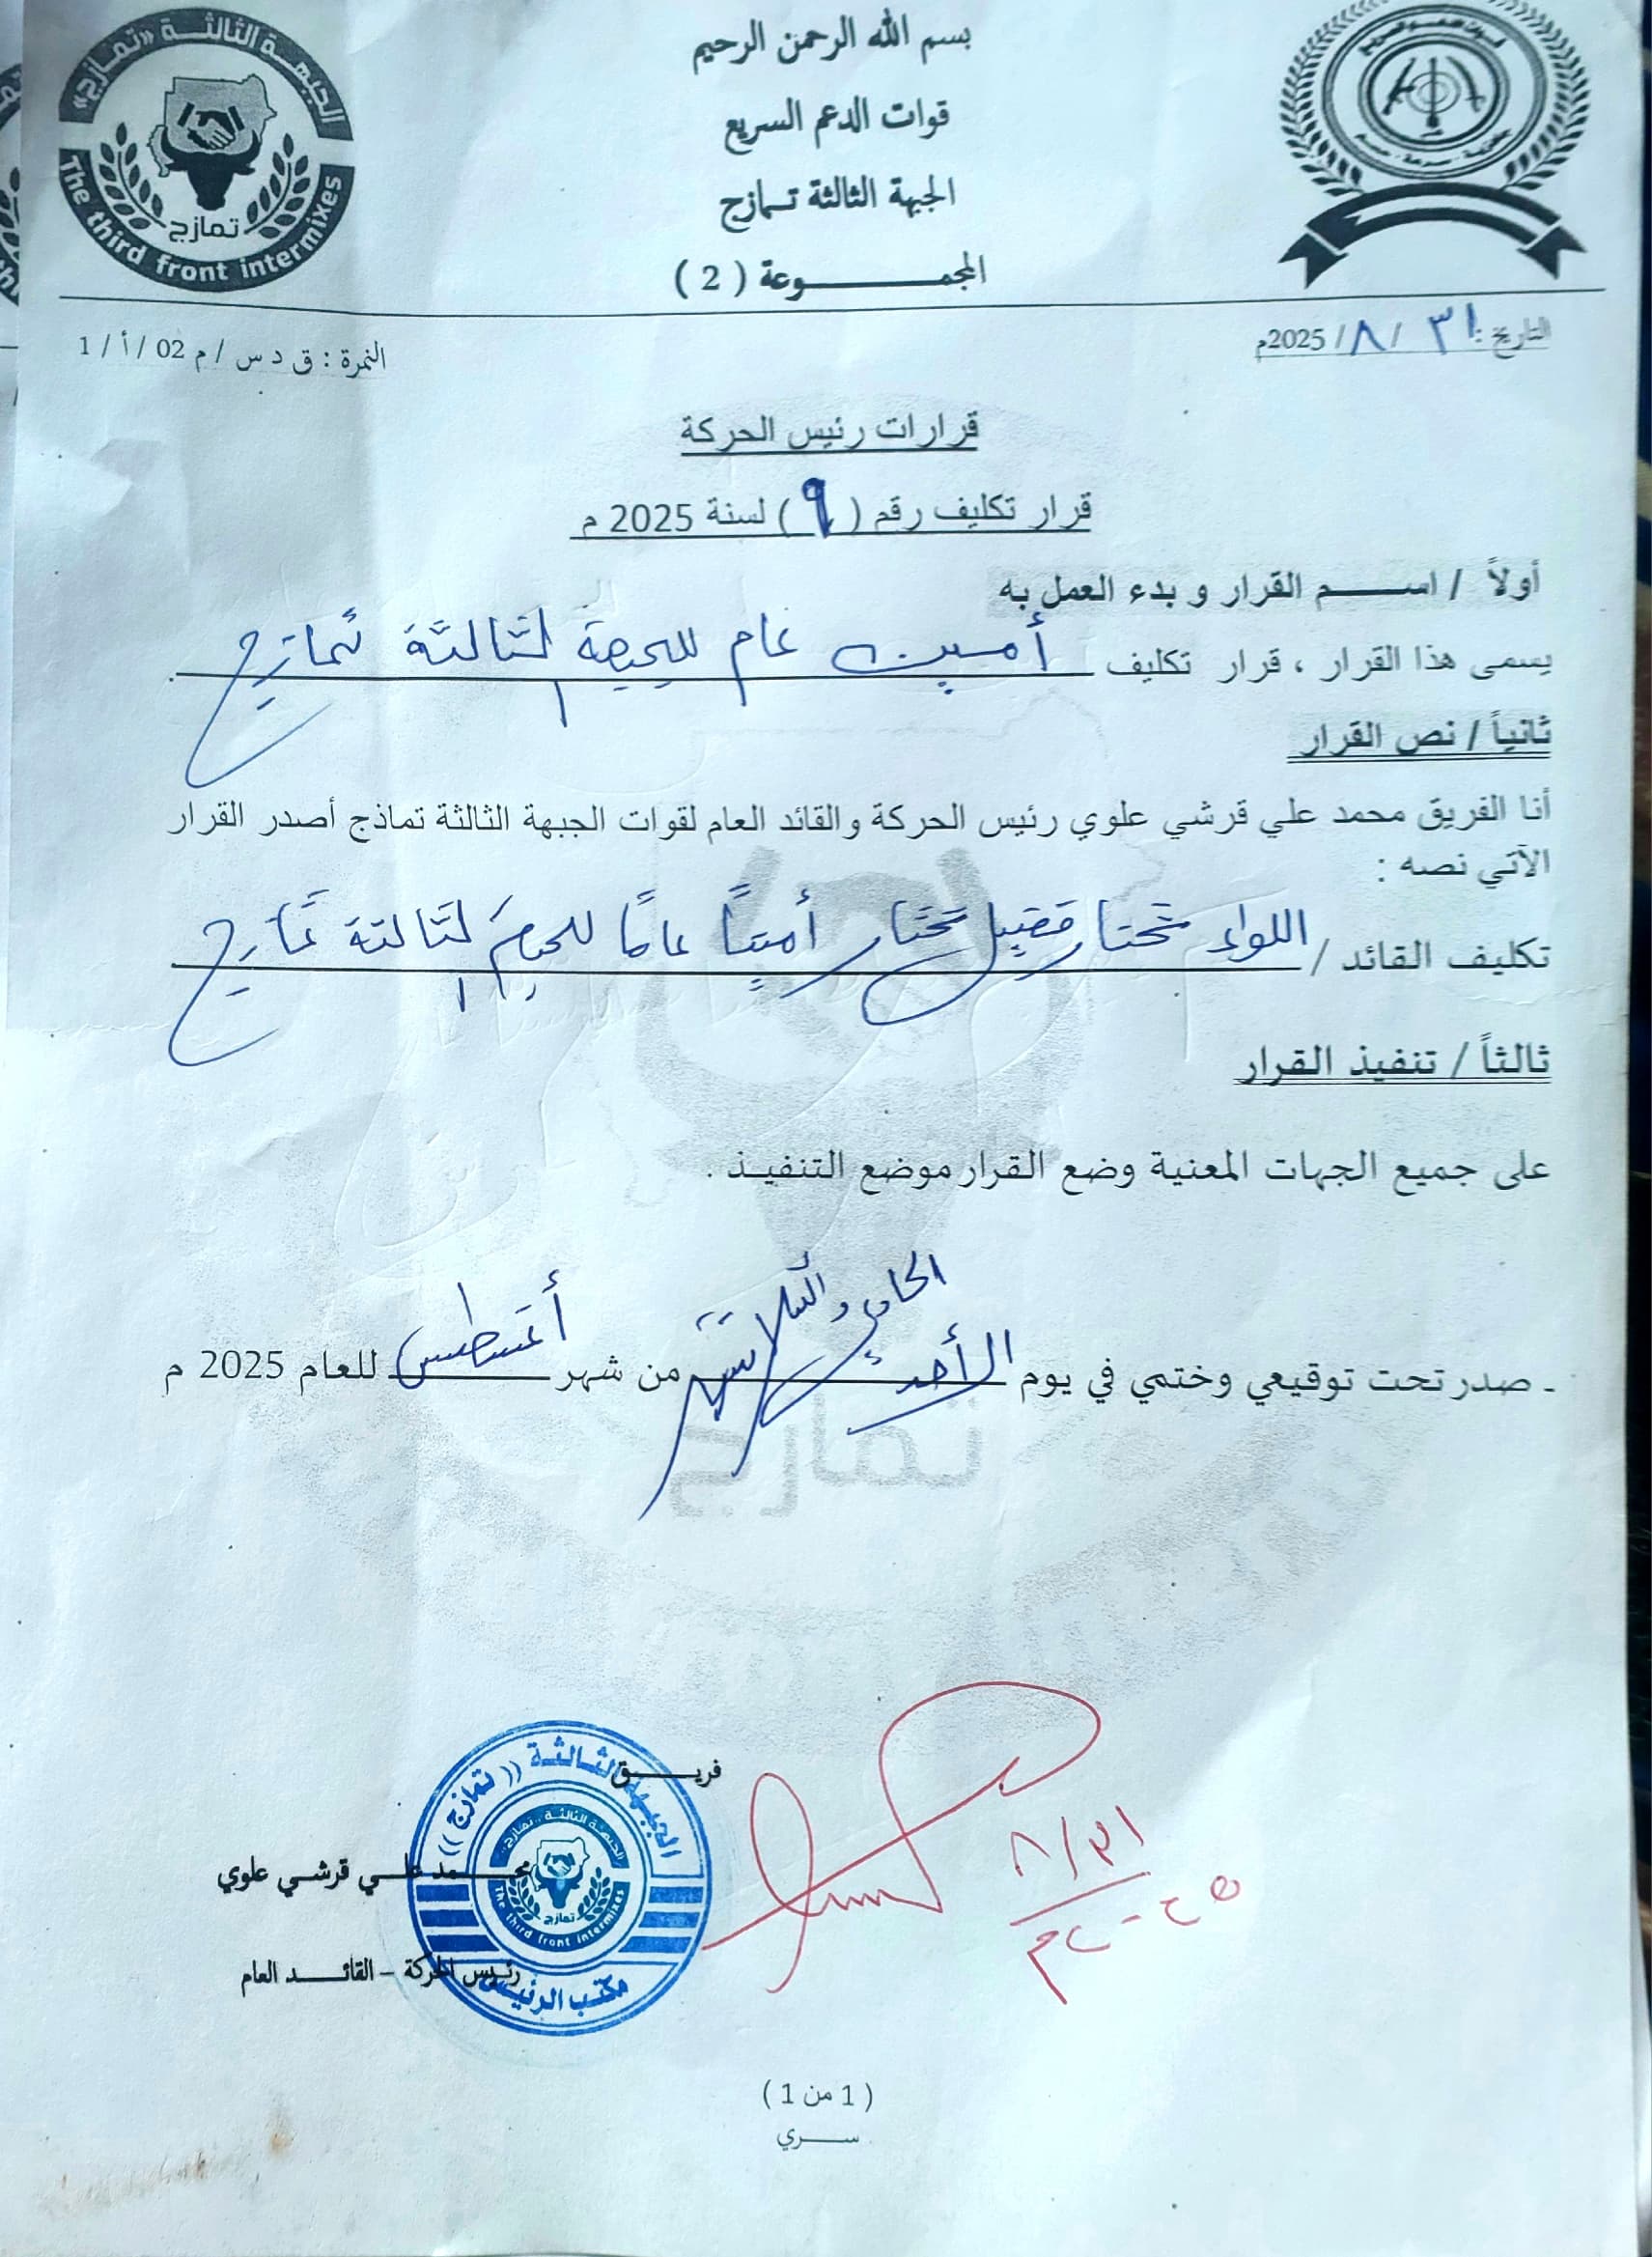 الجبهة الثالثة «تمازج»
تمازج
The third front intermixes
بسم الله الرحمن الرحيم
قوات الدعم السريع
الجبهة الثالثة تمازج
المجموعة ( 2 )
التاريخ : ٣١ / ٨ / 2025م
النمرة : ق د س / م 02 / أ / 1
قرارات رئيس الحركة
قرار تكليف رقم ( ٩ ) لسنة 2025 م
أولاً / اسم القرار و بدء العمل به
يسمى هذا القرار ، قرار تكليف أمين عام للجبهة الثالثة تمازج .
ثانياً / نص القرار
أنا الفريق محمد علي قرشي علوي رئيس الحركة والقائد العام لقوات الجبهة الثالثة تماذج أصدر القرار
الآتي نصه :
تكليف القائد / اللواء مختار فضيل مختار أميناً عاماً للجبهة الثالثة تمازج
ثالثاً / تنفيذ القرار
على جميع الجهات المعنية وضع القرار موضع التنفيذ .
ـ صدر تحت توقيعي وختمي في يوم الأحد الحادي والثلاثين من شهر أغسطس للعام 2025 م
فريق
محمد علي قرشي علوي
رئيس الحركة – القائد العام
الجبهة الثالثة (( تمازج ))
الجبهة الثالثة تمازج
تمازج
The third front intermixes
مكتب الرئيس
٨/٣١
٢٠٢٥م
( 1 من 1 )
سري